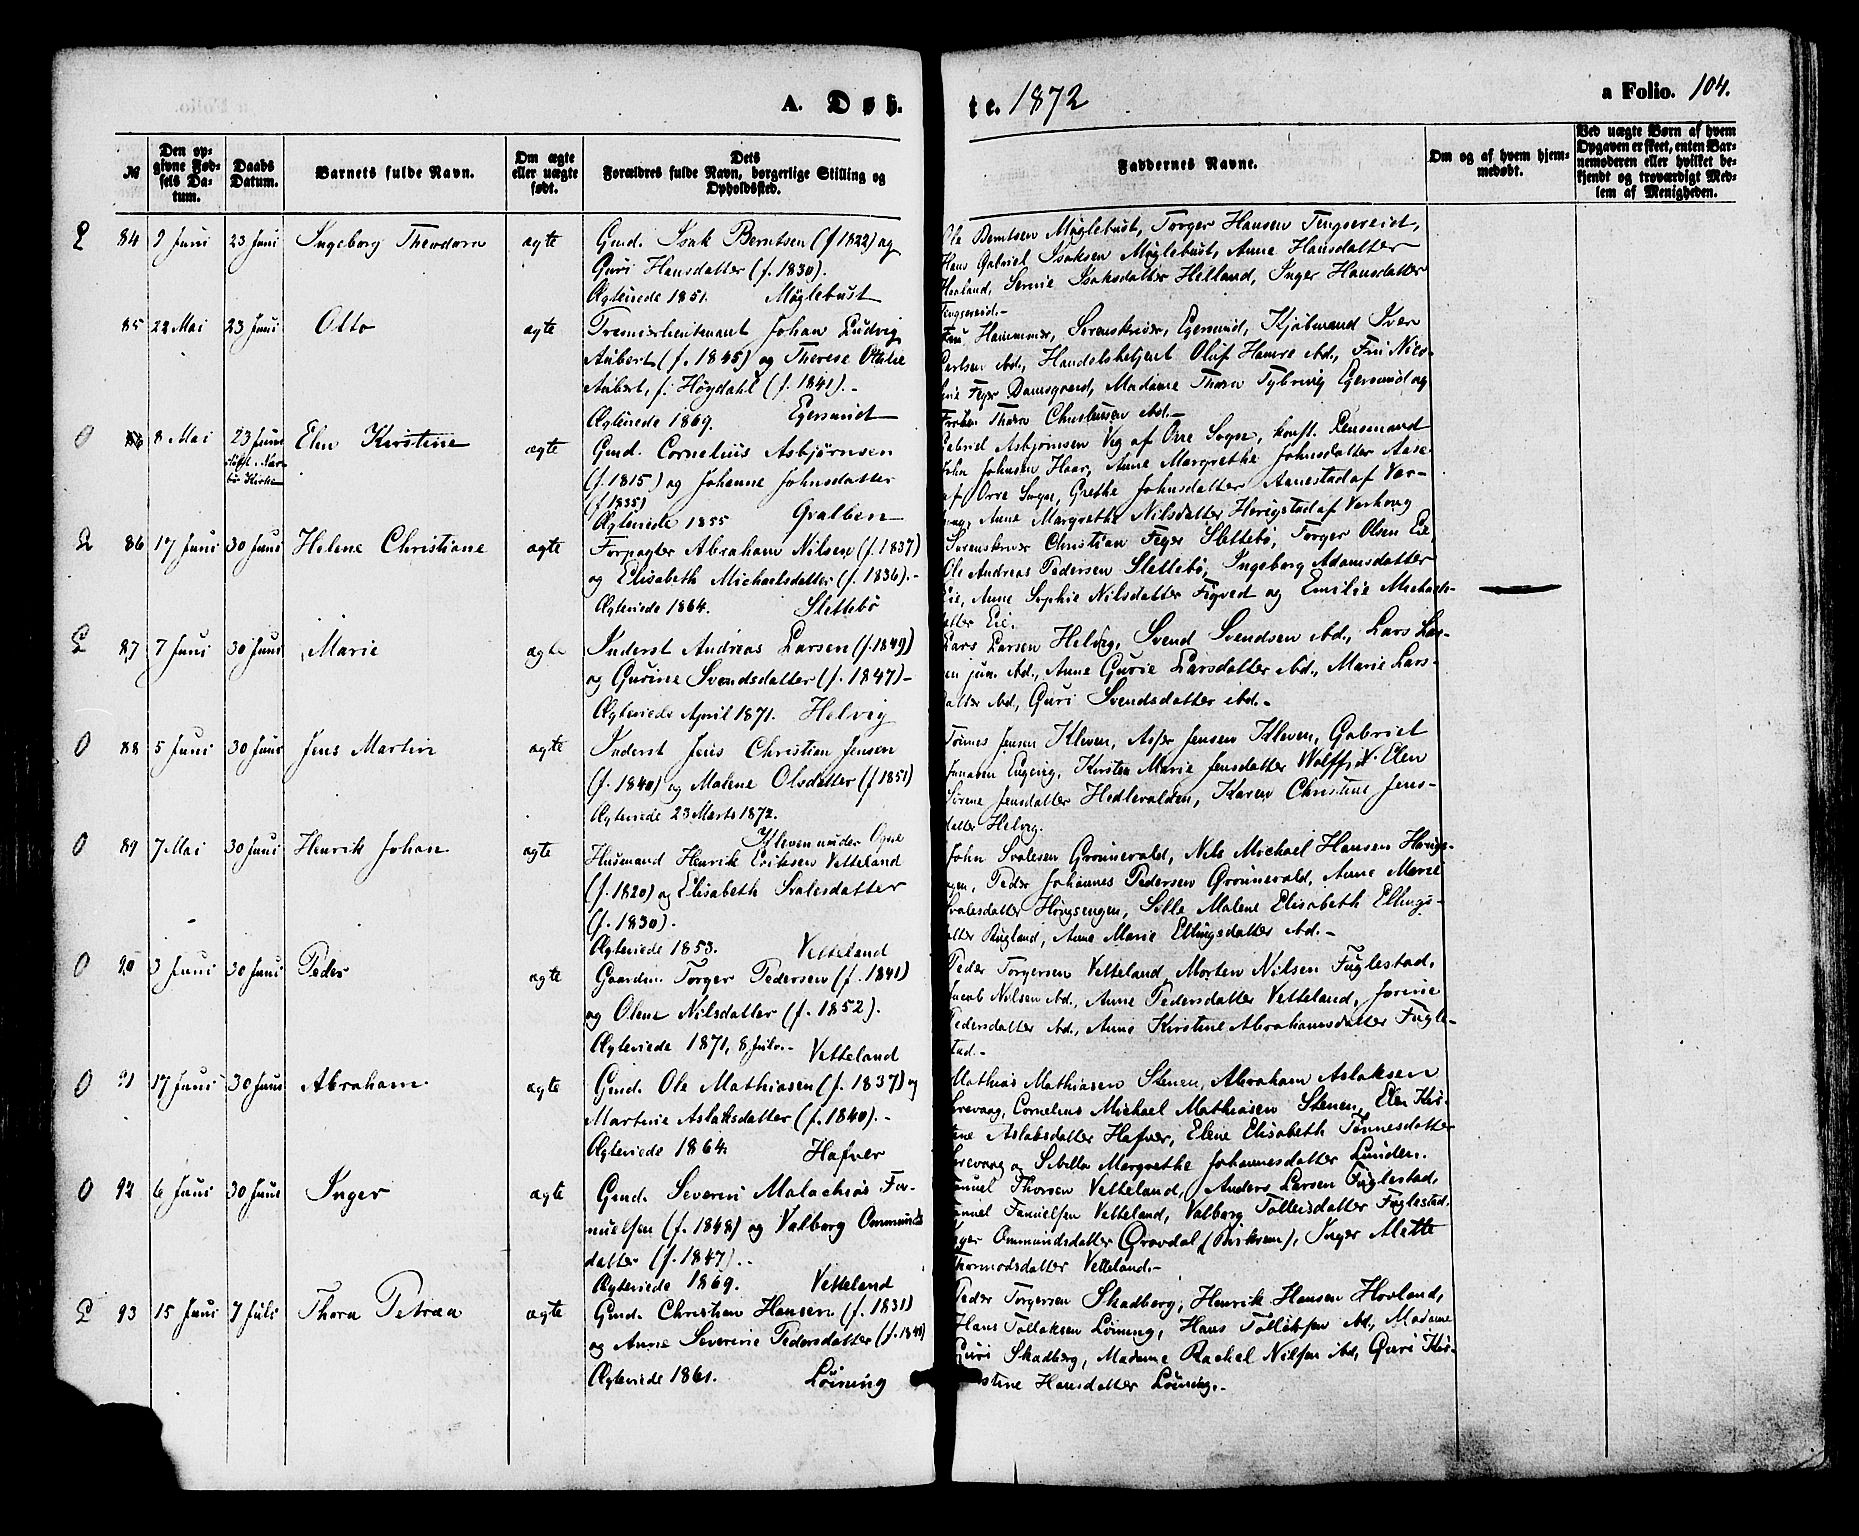 A. Døb.
te. 1872
a Folio. 104.
№
Den opgivne Fødsels Datum.
Daabs Datum.
Barnets fulde Navn.
Om ægte eller uægte født.
Dets Forældres fulde Navn, borgerlige Stilling og Opholdssted.
Faddernes Navne.
Om og af hvem hjemmedøbt.
Ved uægte Børn af hvem Opgaven er skeet, enten Barnemoderen eller hvilket bekjendt og troværdigt Medlem af Menigheden.
84 9 Juni 23 Juni Ingeborg Theodora ægte Gmd. Isak Berntsen (f 1822) og
Guri Hansdatter (f. 1830).
Ægteviede 1851. Møglebust
Ole Berntsen Møglebust, Torger Hansen Tengsereid,
Hans Gabriel Isaksen Møglebust, Anne Hansdatter
Hovland, Serine Isaksdatter Helland, Inger Hansdatter
Tengsereid.-
85 22 Mai 23 Juni Otto ægte Premierlieutenant Johan Ludvig
Aubert (f. 1845) og Therese Ottilie
Aubert, f. Høydahl (f. 1841).-
Ægteviede 1869. Egersund
Fru Hammer, Sorenskriver, Egersund, Kjøbmand Iver
Carlsen ibd., Handelsbetjent Oluf Hamre ibd., Fru Nico-
line Feyer Damsgaard, Madame Thora Tybring Egersund og
Frøken Thora Christensen ibd.-
8 Mai 23 Juni Elen Kirstine ægte Gmd. Cornelius Asbjørnsen
(f. 1815) og Johanne Johnsdatter
(f 1835)
Ægteviede 1855 Graben
Gabriel Asbjørnsen Veg af Orre Sogn, konst. Lensmand
John Johnsen Haar, Anne Margrethe Johnsdatter Aase
af Orre Sogn, Grethe Johnsdatter Aanestad af Var-
haug, Anne Margrethe Nilsdatter Herigstad af Varhoug
86 17 Juni 30 Juni Helene Christiane ægte Forpagter Abraham Nilsen (f. 1837)
og Elisabeth Michaelsdatter (f. 1836).-
Ægteviede 1864. Slettebø
Sorenskriver Christian Feyer Slettebø, Torger Olsen Eie,
Ole Andreas Pedersen Slettebø, Ingeborg Adamsdatter
Eie, Anne Sophie Nilsdatter Figved og Emilie Michaels-
datter Eie.
87 7 Juni 30 Juni Marie ægte Inderst Andreas Larsen (f. 1849)
og Gurine Svendsdatter (f. 1847)-
Ægteviede April 1871. Helvig
Lars Larsen Helvig, Svend Svendsen ibd., Lars Lar-
sen jun. ibd., Anne Gurie Larsdatter ibd., Marie Lars-
datter ibd., Guri Svendsdatter ibd.-
88 5 Juni 30 Juni Jens Martin ægte Inderst Jens Christian Jensen
(f. 1840) og Malene Olsdatter (f 1851)
Ægteviede 23 Marts 1872.
Kleven under Ogne
Tønnes Jensen Kleven, Asser Jensen Kleven, Gabriel
Jonassen Eigerig, Kirsten Marie Jensdatter Elen
Sørine Jensdatter Hedlevalden, Karen Christine Jens-
datter Helvig.
89 7 Mai 30 Juni Henrik Johan ægte Husmand Henrik Eriksen Vetteland
(f. 1820) og Elisabeth Svalesdatter
(f. 1830).
Ægteviede 1853. Vetteland
John Svalesen Grønevald, Nils Michael Hansen
Peder Johannes Pedersen Grønevald, Anne Marie
Svalesdatter Høugsengen, Sille Malene Elisabeth Ellings-
datter Rugland, Anne Marie Ellingsdatter ibd.-
90 3 Juni 30 Juni Peder ægte Gaardm. Torger Pedersen (f. 1841)
og Olene Nilsdatter (f. 1852).
Ægteviede 1871, 8 Juli.- Vetteland
Peder Torgersen Vetteland, Morten Nilsen Fuglestad,
Jacob Nilsen ibd., Anne Pedersdatter Vetteland, Jorine
Pedersdatter ibd., Anne Kirstine Abrahamsdatter Fugle-
stad.-
91 17 Juni 30 Juni Abraham ægte Gmd. Ole Mathiasen (f. 1837) og
Martine Aslaksdatter (f. 1840).-
Ægteviede 1864. Hafver
Mathias Mathiasen Stenen, Abraham Aslaksen
Cornelius Michael Mathiasen Stenen, Elen Kir-
stine Aslaksdatter Hafver, Elene Elisabeth Tønnesdatter
og Sibille Margrethe Johannesdatter Lunden.
92 6 Juni 30 Juni Inger ægte Gmd. Severin Malachias Fa-
nuelsen (f. 1848) og Valborg Ommunds
datter (f. 1847)..
Ægteviede 1869. Vetteland
Fanuel Thorsen Vetteland, Anders Larsen Fuglestad,
Daniel Fanuelsen Vetteland, Valborg Tollefsdatter Fuglestad,
Inger Ommundsdatter Grøvdal (Birkrem), Inger Mette
Thormodsdatter Vetteland.-
93 15 Juni 7 Juli Thora Petraa ægte Gmd. Christian Hansen (f. 1831)
og Anne Severine Pedersdatter
Ægteviede 1861. Løining
Peder Torgersen Skadberg, Henrik Hansen Hovland,
Hans Tollaksen Løining, Hans Tollefsen ibd., Madame
Guri Skadberg, Madame Rachel Nilsen ibd, Guri Kir-
stine Hansdatter Løining.-